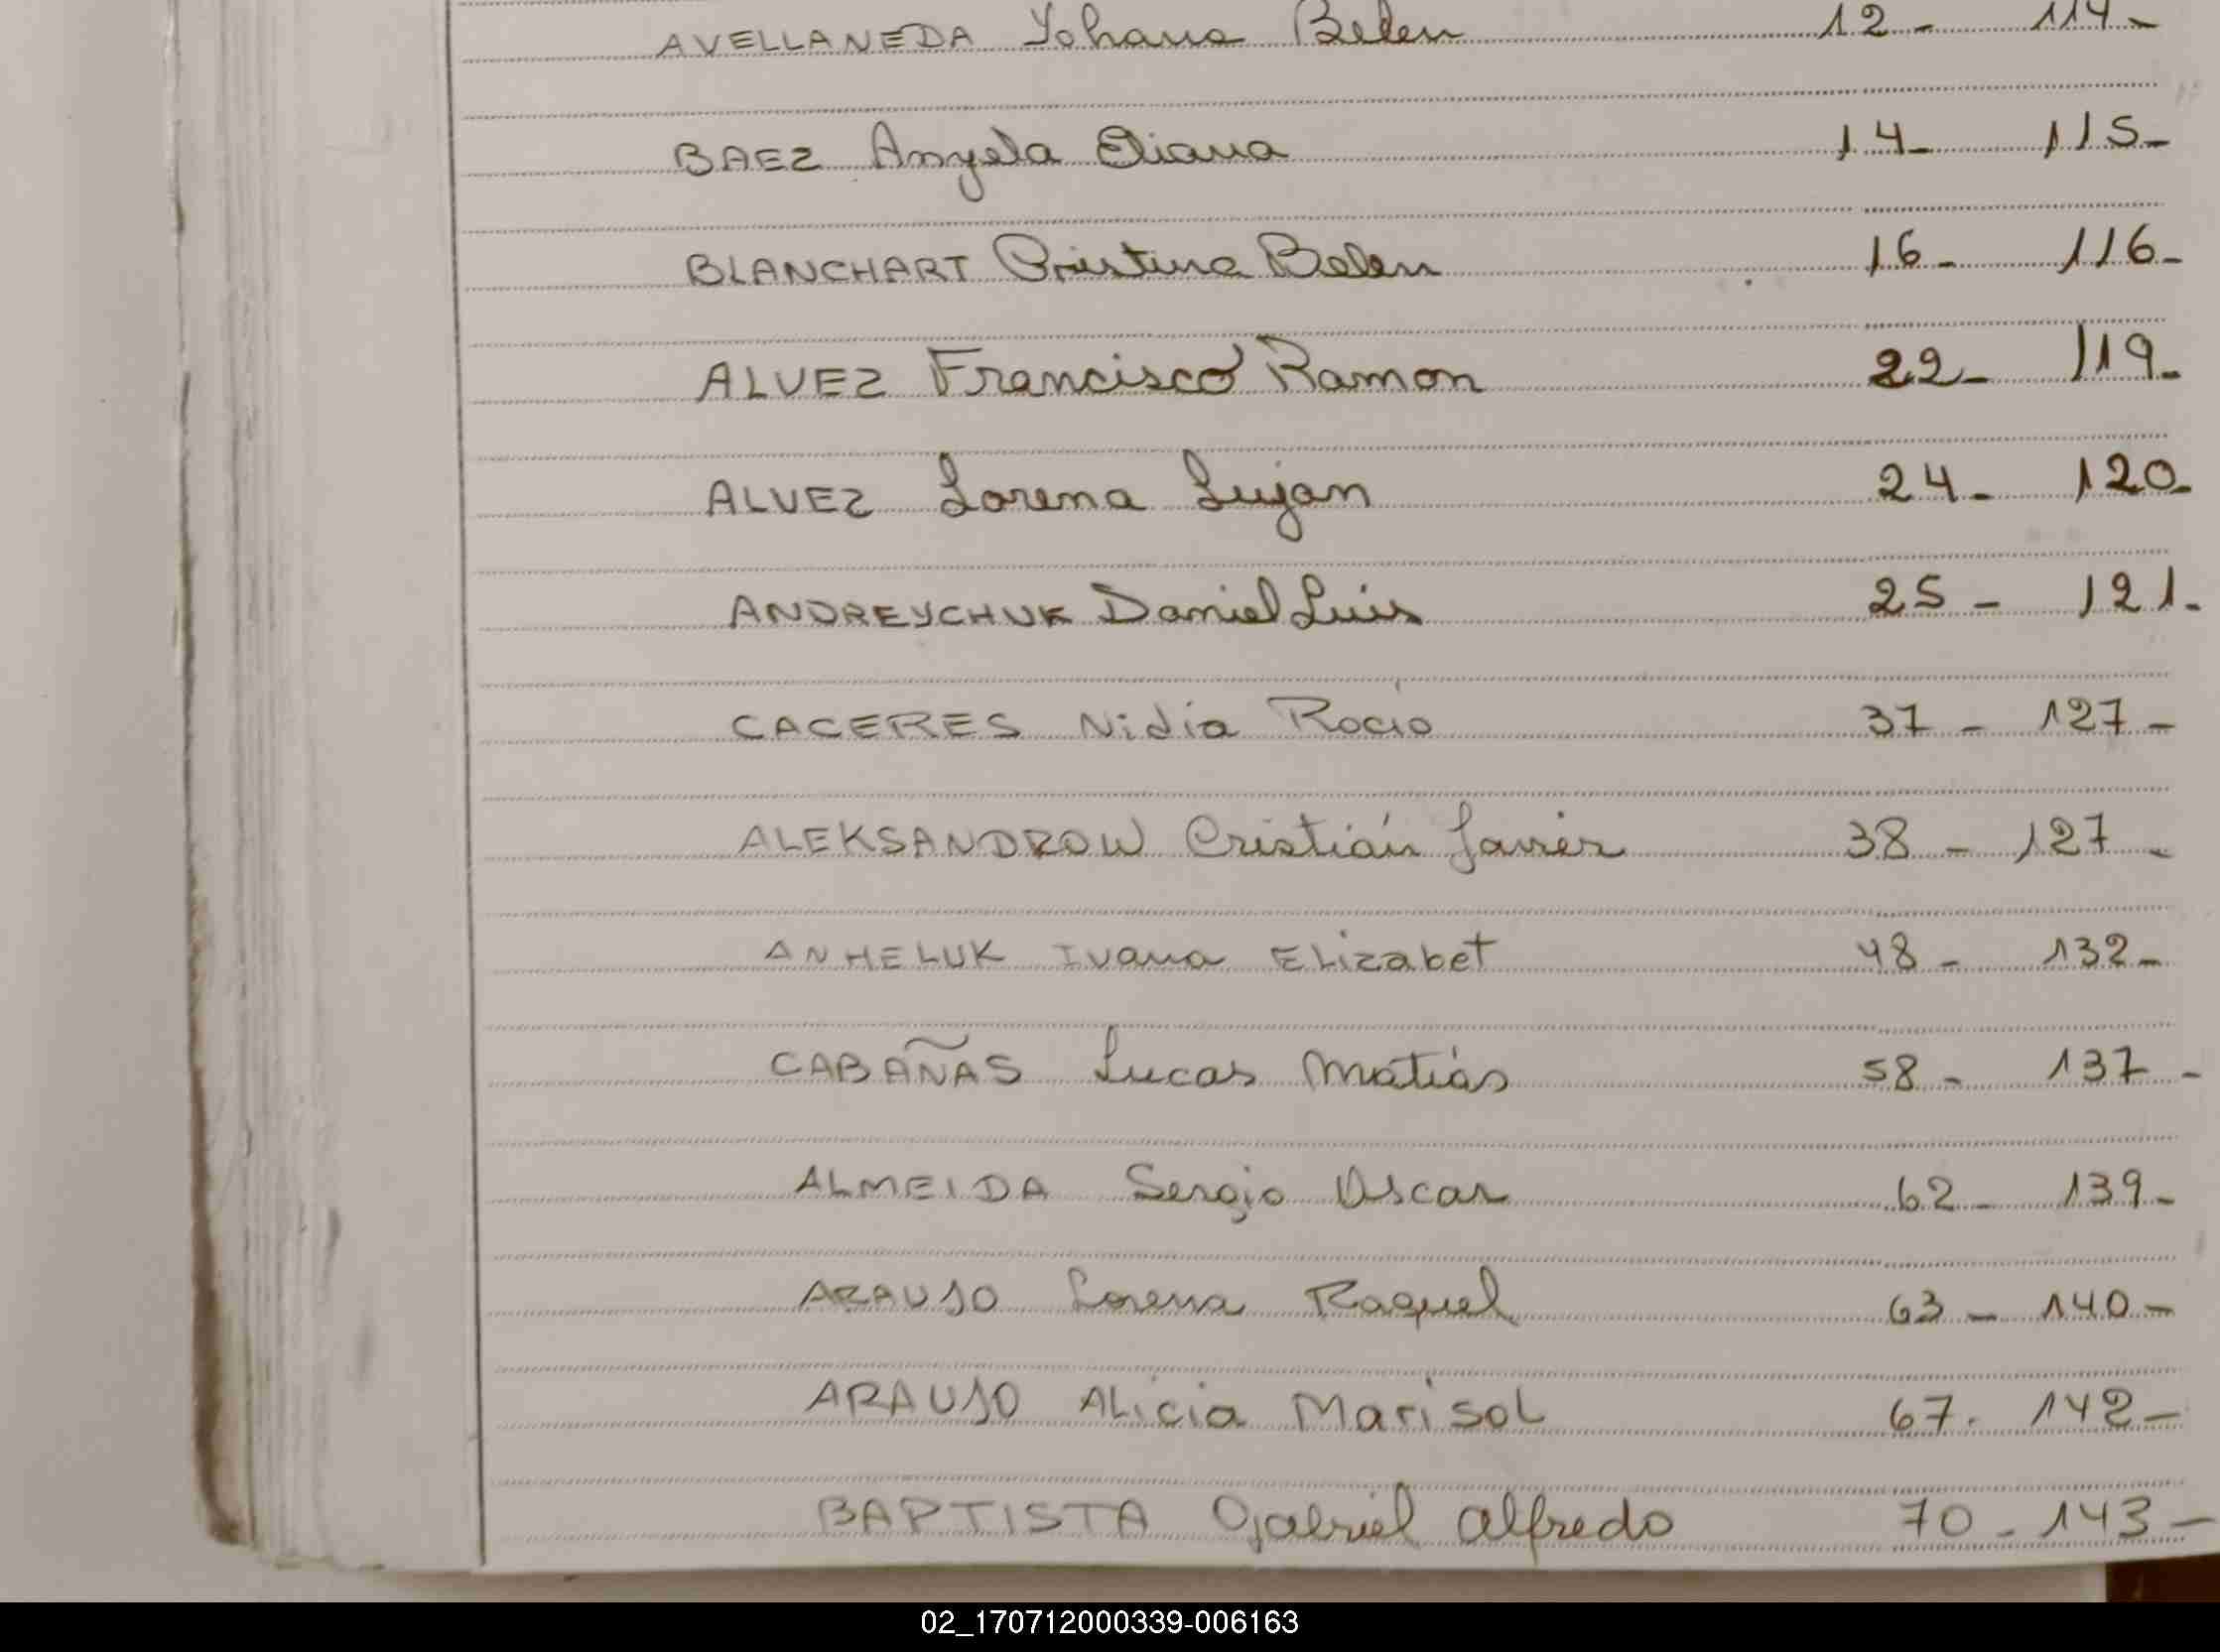 AVELLANEDA Yohana Belen 12- 114-
BAEZ Angela Eliana 14- 115-
BLANCHART Cristina Belen 16- 116-
ALVEZ Francisco Ramon 22- 119-
ALVEZ Lorena Lujan 24- 120-
ANDREYCHUK Daniel Luis 25- 121-
CACERES Nidia Rocio 37- 127-
ALEKSANDROW Cristián Javier 38- 127-
ANHELUK Ivana Elizabet 48- 132-
CABAÑAS Lucas Matías 58- 137-
ALMEIDA Sergio Oscar 62- 139-
ARAUJO Lorena Raquel 63- 140-
ARAUJO Alicia Marisol 67. 142-
BAPTISTA Gabriel alfredo 70- 143-
02_170712000339-006163